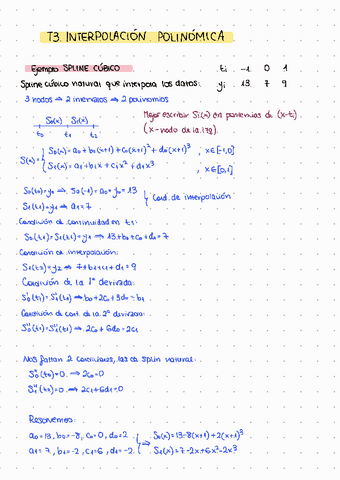 T3. INTERPOLACIÓN POLINÓMICA
Ejemplo SPLINE CÚBICO ti -1 0 1
Spline cúbico natural que interpola los datos: yi 13 7 9
3 nodos → 2 intervalos → 2 polinomios
S0(x) S1(x)
t0 t1 t2
Mejor escribir Si(x) en potencias de (x-ti)
(x-nodo de la izq).
S(x)= { S0(x)=a0+b0(x+1)+c0(x+1)²+d0(x+1)³ , x∈[-1,0]
S1(x)=a1+b1x+c1x²+d1x³ , x∈[0,1]
S0(t0)=y0 ⇒ S0(-1)=a0=y0=13
S1(t1)=y1 ⇒ a1=7
Cond. de interpolación
Condición de continuidad en t1:
S0(t1)=S1(t1)=y1 ⇒ 13+b0+c0+d0=7
Condición de interpolación:
S1(t2)=y2 ⇒ 7+b1+c1+d1=9
Condición de la 1ª derivada:
S'0(t1)=S'1(t1) ⇒ b0+2c0+3d0=b1
Condición de cont. de la 2ª derivada:
S''0(t1)=S''1(t1) ⇒ 2c0+6d0=2c1
Nos faltan 2 condiciones, las de splin natural:
S''0(t0)=0 ⇒ 2c0=0
S''1(t2)=0 ⇒ 2c1+6d1=0
Resolvemos:
a0=13, b0=-8, c0=0, d0=2 ⇒ S0(x)=13-8(x+1)+2(x+1)³
a1=7, b1=-2, c1=6, d1=-2 S1(x)=7-2x+6x²-2x³